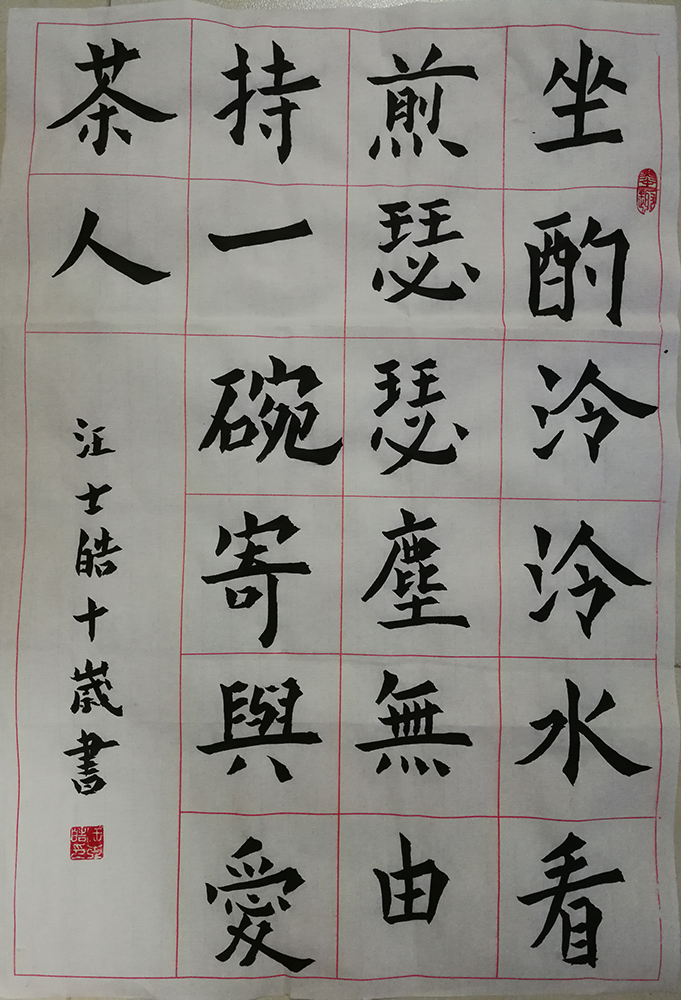 坐酌泠泠水看
煎瑟瑟塵無由
持一碗寄與愛
茶人
汪士皓十歲書